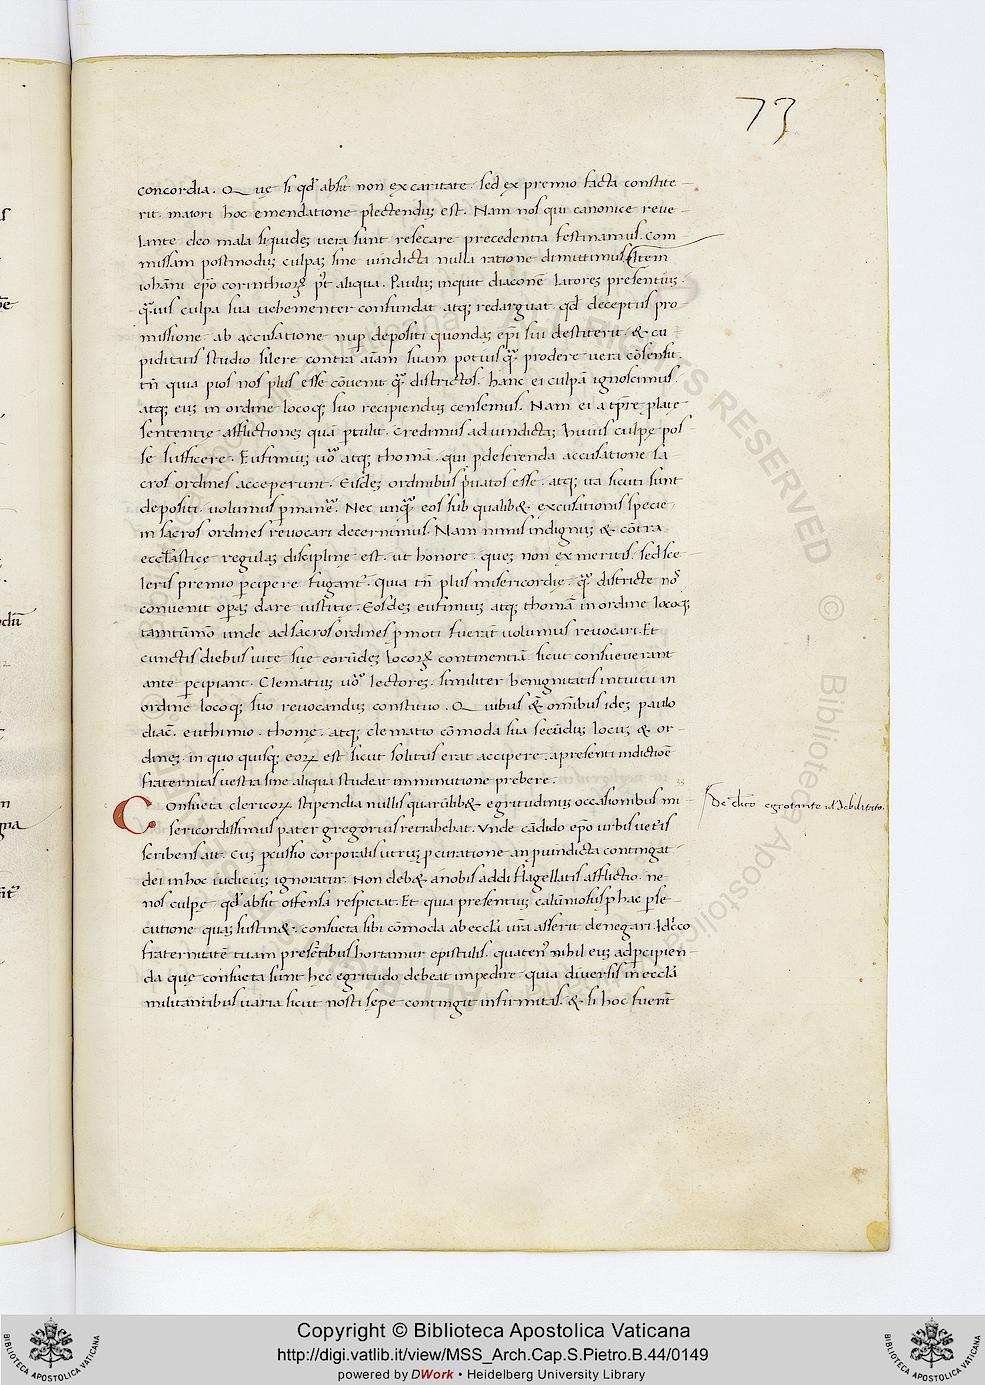 73
concordia. Quę si qd̄ absit non ex caritate. sed ex premio facta constite-
rit. maiori hoc emendatione plectendūs est. Nam nos qui canonice reve-
lante deo mala siquidē vera sunt resecare precedentia festinamus. com-
missam postmodū culpā sine vindicta nulla ratione dimittimus. Item
iohāni ep̄o corinthiorꝝ pꝰt aliqua. Paulus inquit diaconē latores presentiūs
q̄uis culpa sua vehementer confundat atqꝫ redarguat qd̄ deceptus pro
missione ab accusatione nup̄ depositi quondā ep̄i sui destiterit. & cu
piditatis studio silere contra aīam suam potius q̄ prodere vera cōsensit.
tn̄ quia pios nos plus esse cōvenit q̄ districtos. hanc ei culpā ignoscimus.
atqꝫ eum in ordine locoqꝫ suo recipiendū censemus. Nam ei a tp̄re platę
sententię afflictiones quā ptulit. credimus ad vindictā huius culpę pos
se sufficere. Eufimius vō atqꝫ thomā. qui p deserenda accusatione sa
cros ordines acceperunt. Eisdē ordinibus pvatos esse. atqꝫ ita sicuti sunt
depositi. volumus pmanere. Nec unq̄ eos sub qualib& excusationis specie
in sacros ordines revocari decernimus. Nam nimis indignū & cōtra
eccl̄asticę regulā disciplinę est. ut honore. quē non ex meritis. sed sce-
leris premio pcipere. fugant̄. quia tn̄ plus misericordię. q̄ districte nos
convenit opā dare iustitię. Eosdē eufimiū atqꝫ thomā in ordine locoqꝫ
tantūmō unde ad sacros ordines pmoti fuerāt volumus revocari. Et
cunctis diebus vitę suę eorūdē locorꝝ continentiā sicut consueverant
ante pcipiant. Clematium vō lectorē. similiter benignitatis intuitu in
ordine locoqꝫ suo revocandū constituo. Quibus & omnibus idē paulo
diac̄. euthimio. thomę. atqꝫ clematio cōmoda sua secūdū locū & or-
dinē in quo quisqꝫ eorꝝ est sicut solitus erat accipere. apresenti indictiōe
fraternitas vestra sine aliqua studeat imminutione prebere.
Consueta clericorꝝ stipendia nullis quarūlib& egritudinū occasionibus mi-
sericordissimus pater gregorius retrahebat. Unde cādido ep̄o urbis vet̄is
scribens ait. Cū pcussio corporalis utrū p curatione an p vindicta contingat
dei in hoc iudiciū ignoratur. Non deb& a nobis addi flagellatis afflictio. ne
nos culpę qd̄ absit offensā respiciat. Et quia presentiū calūmosus p hac pse-
cutione quā sustin&. consueta sibi cōmoda ab eccl̄a vr̄a asserit denegari. Idcc̄o
fraternitatē tuam presētibus hortamur epistulis. quaten̄ nihil eum ad pcipien-
da quę consueta sunt hęc egritudo debeat impedire. quia diversis in eccl̄a
militantibus varia sicut nosti sępe contingit infirmitas. & si hoc fuerit
De clīco egrotante ul̄ debilitato.
Copyright © Biblioteca Apostolica Vaticana
http://digi.vatlib.it/view/MSS_Arch.Cap.S.Pietro.B.44/0149
powered by DWork • Heidelberg University Library